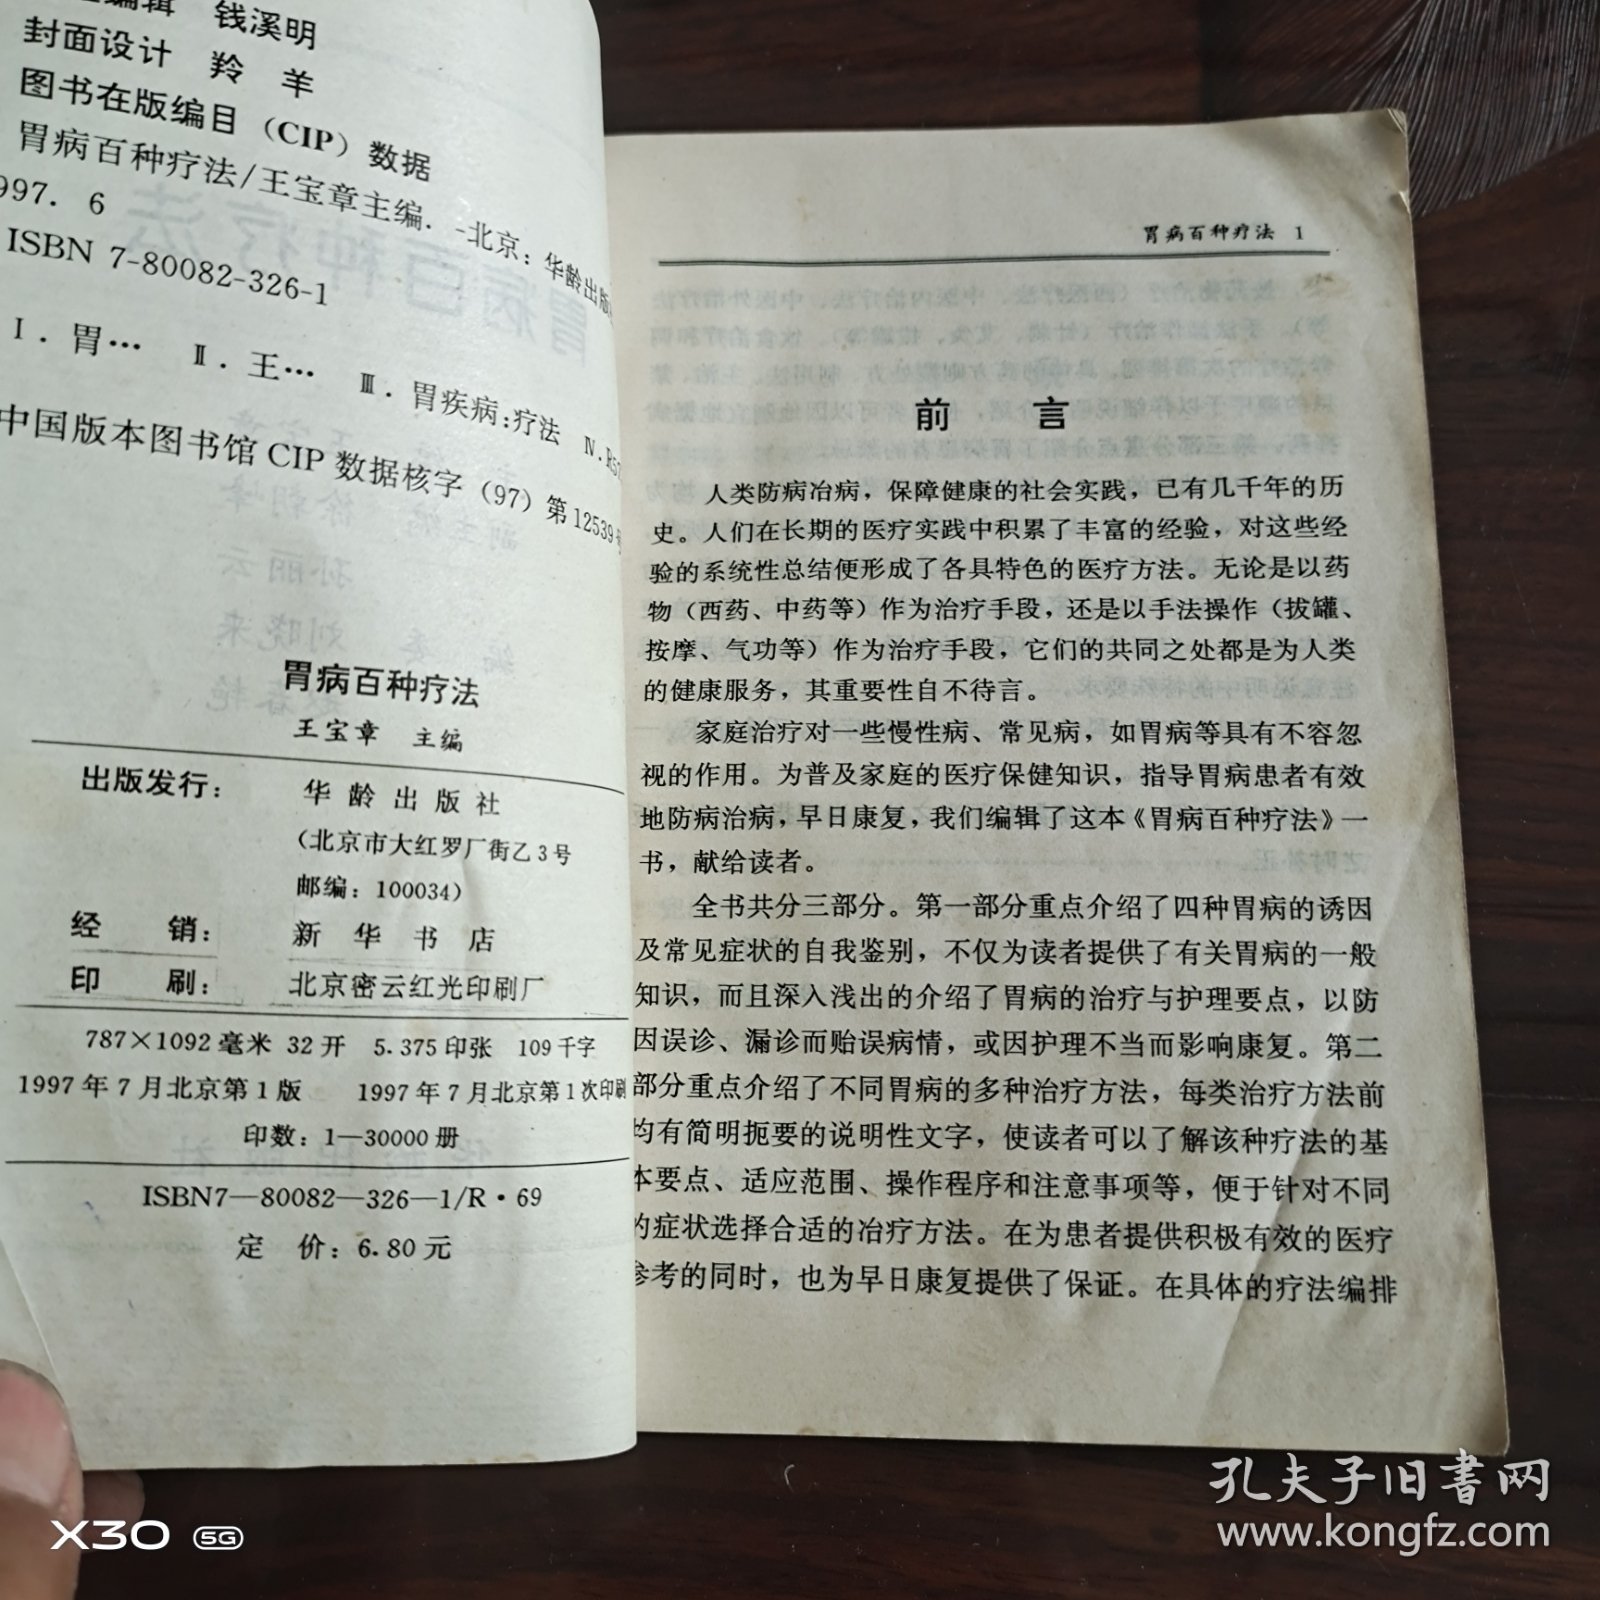 编辑 钱溪明
封面设计 羚 羊
图书在版编目（CIP）数据
胃病百种疗法/王宝章主编．-北京：华龄出版
997．6
ISBN 7-80082-326-1
Ⅰ．胃… Ⅱ．王… Ⅲ．胃疾病:疗法 Ⅳ．R57
中国版本图书馆CIP数据核字（97）第12539号
胃病百种疗法
王宝章 主编
出版发行： 华龄出版社
（北京市大红罗厂街乙3号
邮编：100034）
经 销： 新华书店
印 刷： 北京密云红光印刷厂
787×1092毫米 32开 5.375印张 109千字
1997年7月北京第1版 1997年7月北京第1次印刷
印数：1—30000册
ISBN7—80082—326—1/R·69
定 价：6.80元
胃病百种疗法 1
前 言
人类防病治病，保障健康的社会实践，已有几千年的历
史。人们在长期的医疗实践中积累了丰富的经验，对这些经
验的系统性总结便形成了各具特色的医疗方法。无论是以药
物（西药、中药等）作为治疗手段，还是以手法操作（拔罐、
按摩、气功等）作为治疗手段，它们的共同之处都是为人类
的健康服务，其重要性自不待言。
家庭治疗对一些慢性病、常见病，如胃病等具有不容忽
视的作用。为普及家庭的医疗保健知识，指导胃病患者有效
地防病治病，早日康复，我们编辑了这本《胃病百种疗法》一
书，献给读者。
全书共分三部分。第一部分重点介绍了四种胃病的诱因
及常见症状的自我鉴别，不仅为读者提供了有关胃病的一般
知识，而且深入浅出的介绍了胃病的治疗与护理要点，以防
因误诊、漏诊而贻误病情，或因护理不当而影响康复。第二
部分重点介绍了不同胃病的多种治疗方法，每类治疗方法前
均有简明扼要的说明性文字，使读者可以了解该种疗法的基
本要点、适应范围、操作程序和注意事项等，便于针对不同
的症状选择合适的治疗方法。在为患者提供积极有效的医疗
参考的同时，也为早日康复提供了保证。在具体的疗法编排
孔夫子旧书网
www.kongfz.com
X30 5G